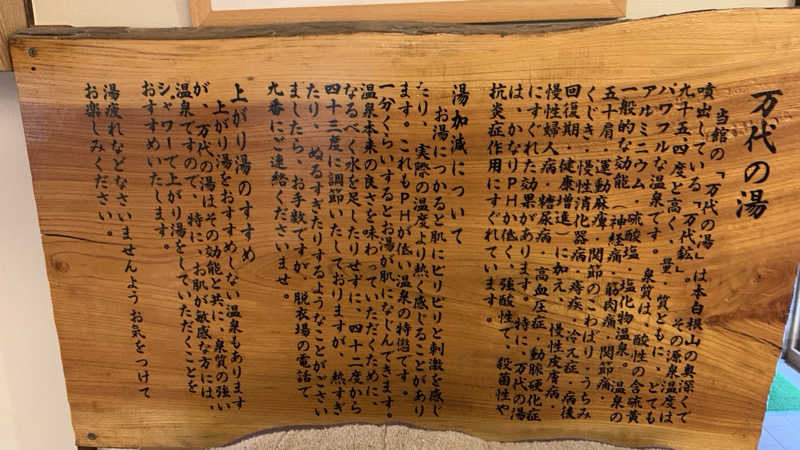 万代の湯
当館の「万代の湯」は本白根山の奥深くで
噴出している「万代鉱」。その源泉温度は
九十五・四度と高く、量・質ともに、とても
パワフルな温泉です。泉質は、酸性の含硫黄
アルミニウム・硫酸塩、塩化物温泉。
一般的な効能（神経痛・筋肉痛・関節痛・温泉の
五十肩・運動麻痺・関節のこわばり・うちみ
くじき・慢性消化器病・痔疾・冷え症・病後
回復期・健康増進）に加え、慢性皮膚病・
慢性婦人病・糖尿病・高血圧症・動脈硬化症
にすぐれた効果があります。特に、万代の湯
は、かなりＰＨが低く、強酸性で、殺菌性や
抗炎症作用にすぐれています。
湯加減について
お湯につかると肌にピリピリと刺激を感じ
たり、実際の温度より熱く感じることがあり
ます。これもＰＨが低い温泉の特徴です。
一分くらいするとお湯が肌になじんできます。
温泉本来の良さを味わっていただくために、
なるべく水を足したりせずに、四十二度から
四十三度に調節いたしておりますが、熱すぎ
たり、ぬるすぎたりするようなことがござい
ましたら、お手数ですが、脱衣場の電話で
九番にご連絡くださいませ。
上がり湯のすすめ
上がり湯をおすすめしない温泉もあります
が、万代の湯はその効能と共に、泉質の強い
温泉ですので、特に、お肌が敏感な方には、
シャワーで上がり湯をしていただくことを
おすすめいたします。
湯疲れなどなさいませんようお気をつけて
お楽しみください。